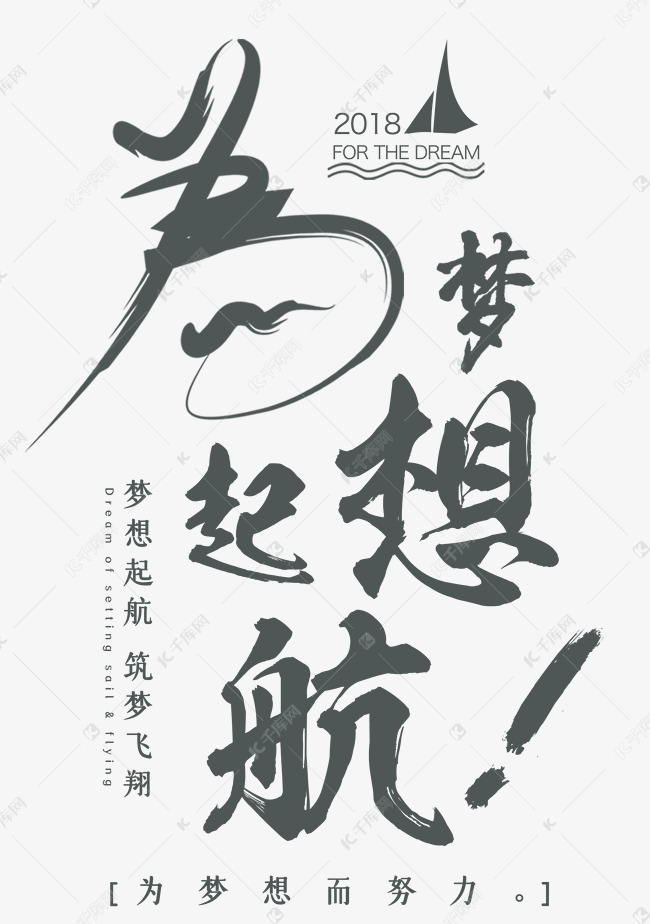 2018
FOR THE DREAM
为梦想
起航!
梦想起航 筑梦飞翔
Dream of setting sail & flying
[为梦想而努力。]
千库网